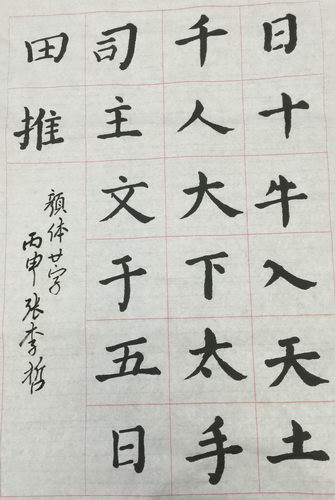 日十牛入天土
千人大下太手
司主文于五日
田推
颜体廿字
丙申张李哲